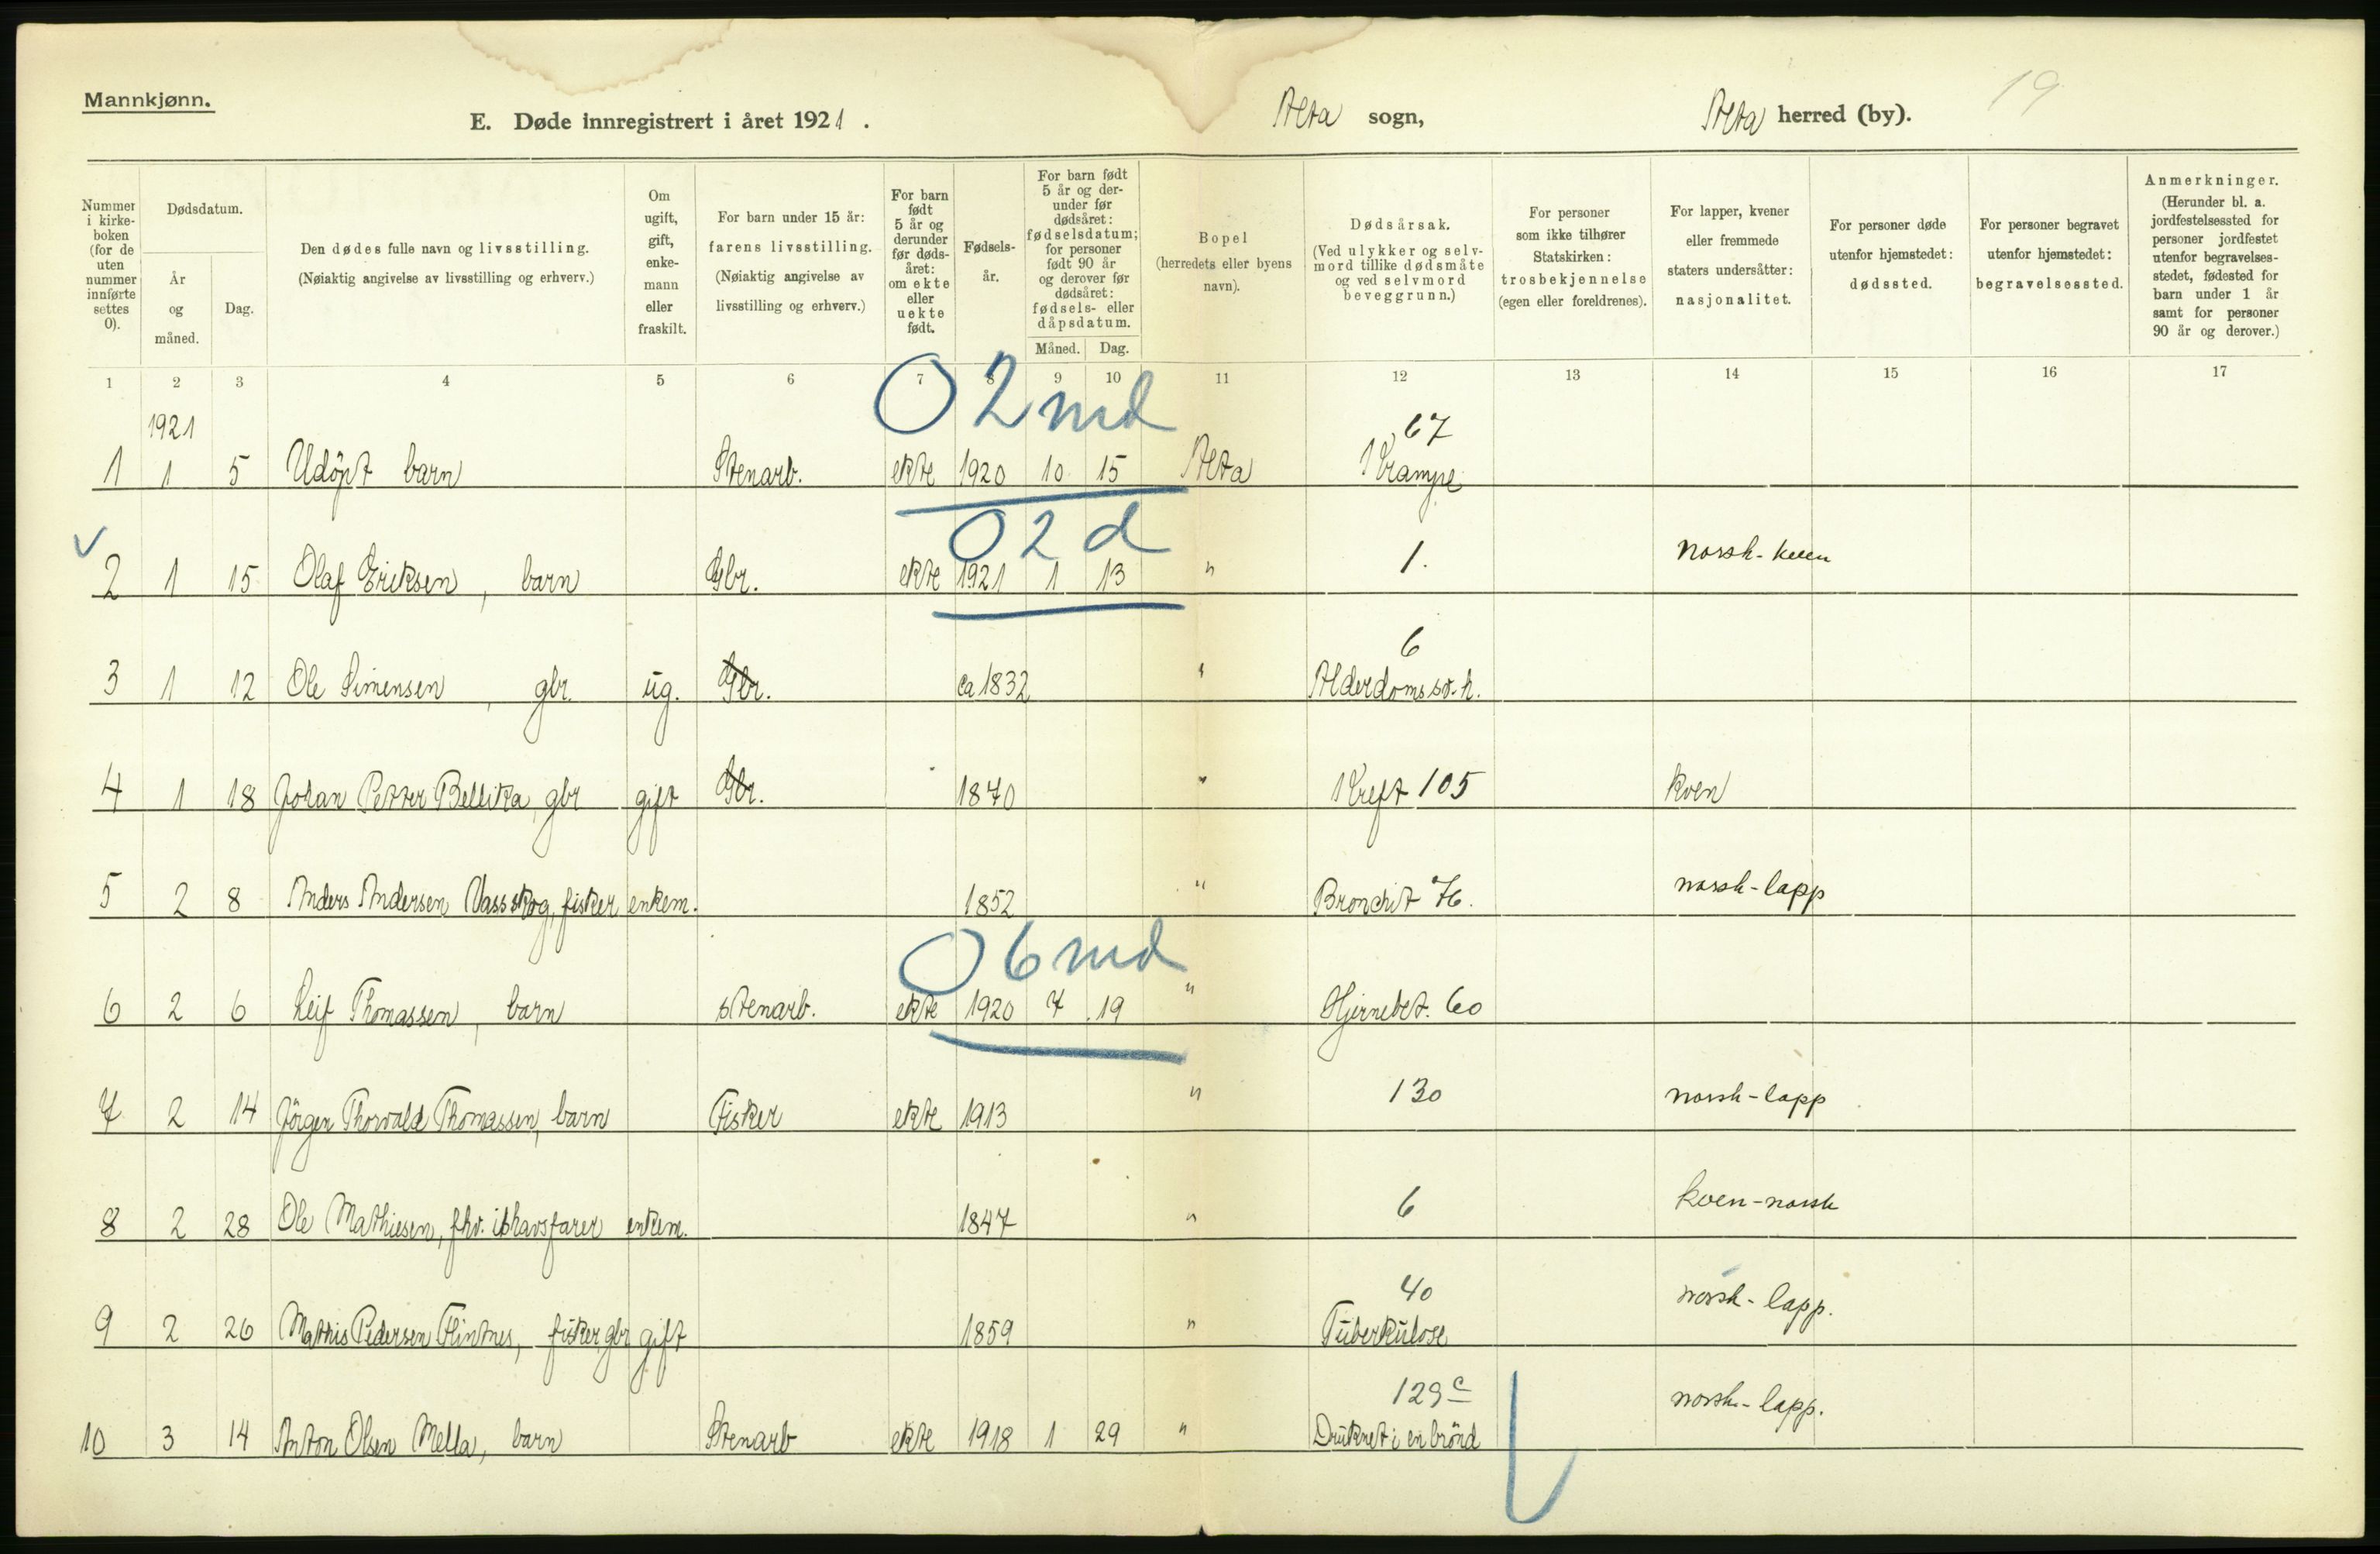 Mannkjønn.
E. Døde innregistrert i året 1921.
Alta sogn,
Alta herred (by).
19
Nummer i kirke-boken (for de uten nummer innførte settes 0).
Dødsdatum.
År og måned.
Dag.
Den dødes fulle navn og livsstilling.
(Nøiaktig angivelse av livsstilling og erhverv.)
Om ugift, gift, enke-mann eller fraskilt.
For barn under 15 år: farens livsstilling.
(Nøiaktig angivelse av livsstilling og erhverv.)
For barn født 5 år og derunder før døds-året: om ekte eller uekte født.
Fødsels-år.
For barn født 5 år og der-under før dødsåret: fødselsdatum; for personer født 90 år og derover før dødsåret: fødsels- eller dåpsdatum.
Måned.
Dag.
Bopel
(herredets eller byens navn).
Dødsårsak.
(Ved ulykker og selv-mord tillike dødsmåte og ved selvmord beveggrunn.)
For personer som ikke tilhører Statskirken: trosbekjennelse (egen eller foreldrenes).
For lapper, kvener eller fremmede staters undersåtter: nasjonalitet.
For personer døde utenfor hjemstedet: dødssted.
For personer begravet utenfor hjemstedet: begravelsessted.
Anmerkninger.
(Herunder bl. a. jordfestelsessted for personer jordfestet utenfor begravelses-stedet, fødested for barn under 1 år samt for personer 90 år og derover.)
1 2 3 4 5 6 7 8 9 10 11 12 13 14 15 16 17
1921
0 2 md
67
1 1 5 Udöpt barn Stenarb. ekte 1920 10 15 Alta Krampe
0 2 d
2 1 15 Olaf Eriksen, barn Gbr. ekte 1921 1 13 " 1. norsk-kven
6
3 1 12 Ole Simensen, gbr. ug. Gbr. ca 1832 " Alderdomssv.h.
4 1 18 Johan Petter Bellika, gbr gift Gbr. 1870 " Kreft 105 kven
5 2 8 Anders Andersen Vasskog, fisker enkem. 1852 " Bronchit 76. norsk-lapp
0 6 md
6 2 6 Leif Thomassen, barn stenarb. ekte 1920 7 19 " Hjernebet. 60
7 2 14 Jörgen Thorvald Thomassen, barn Fisker ekte 1913 " 130 norsk-lapp
8 2 28 Ole Mathiesen, fhv. ishavsfarer enkem. 1847 " 6 kven-norsk
40
9 2 26 Mathis Pedersen Flintnes, fisker, gbr gift 1859 " Tuberkulose norsk-lapp.
129 c
10 3 14 Anton Olsen Mella, barn Stenarb ekte 1918 1 29 " Druknet i en brönd norsk-lapp.